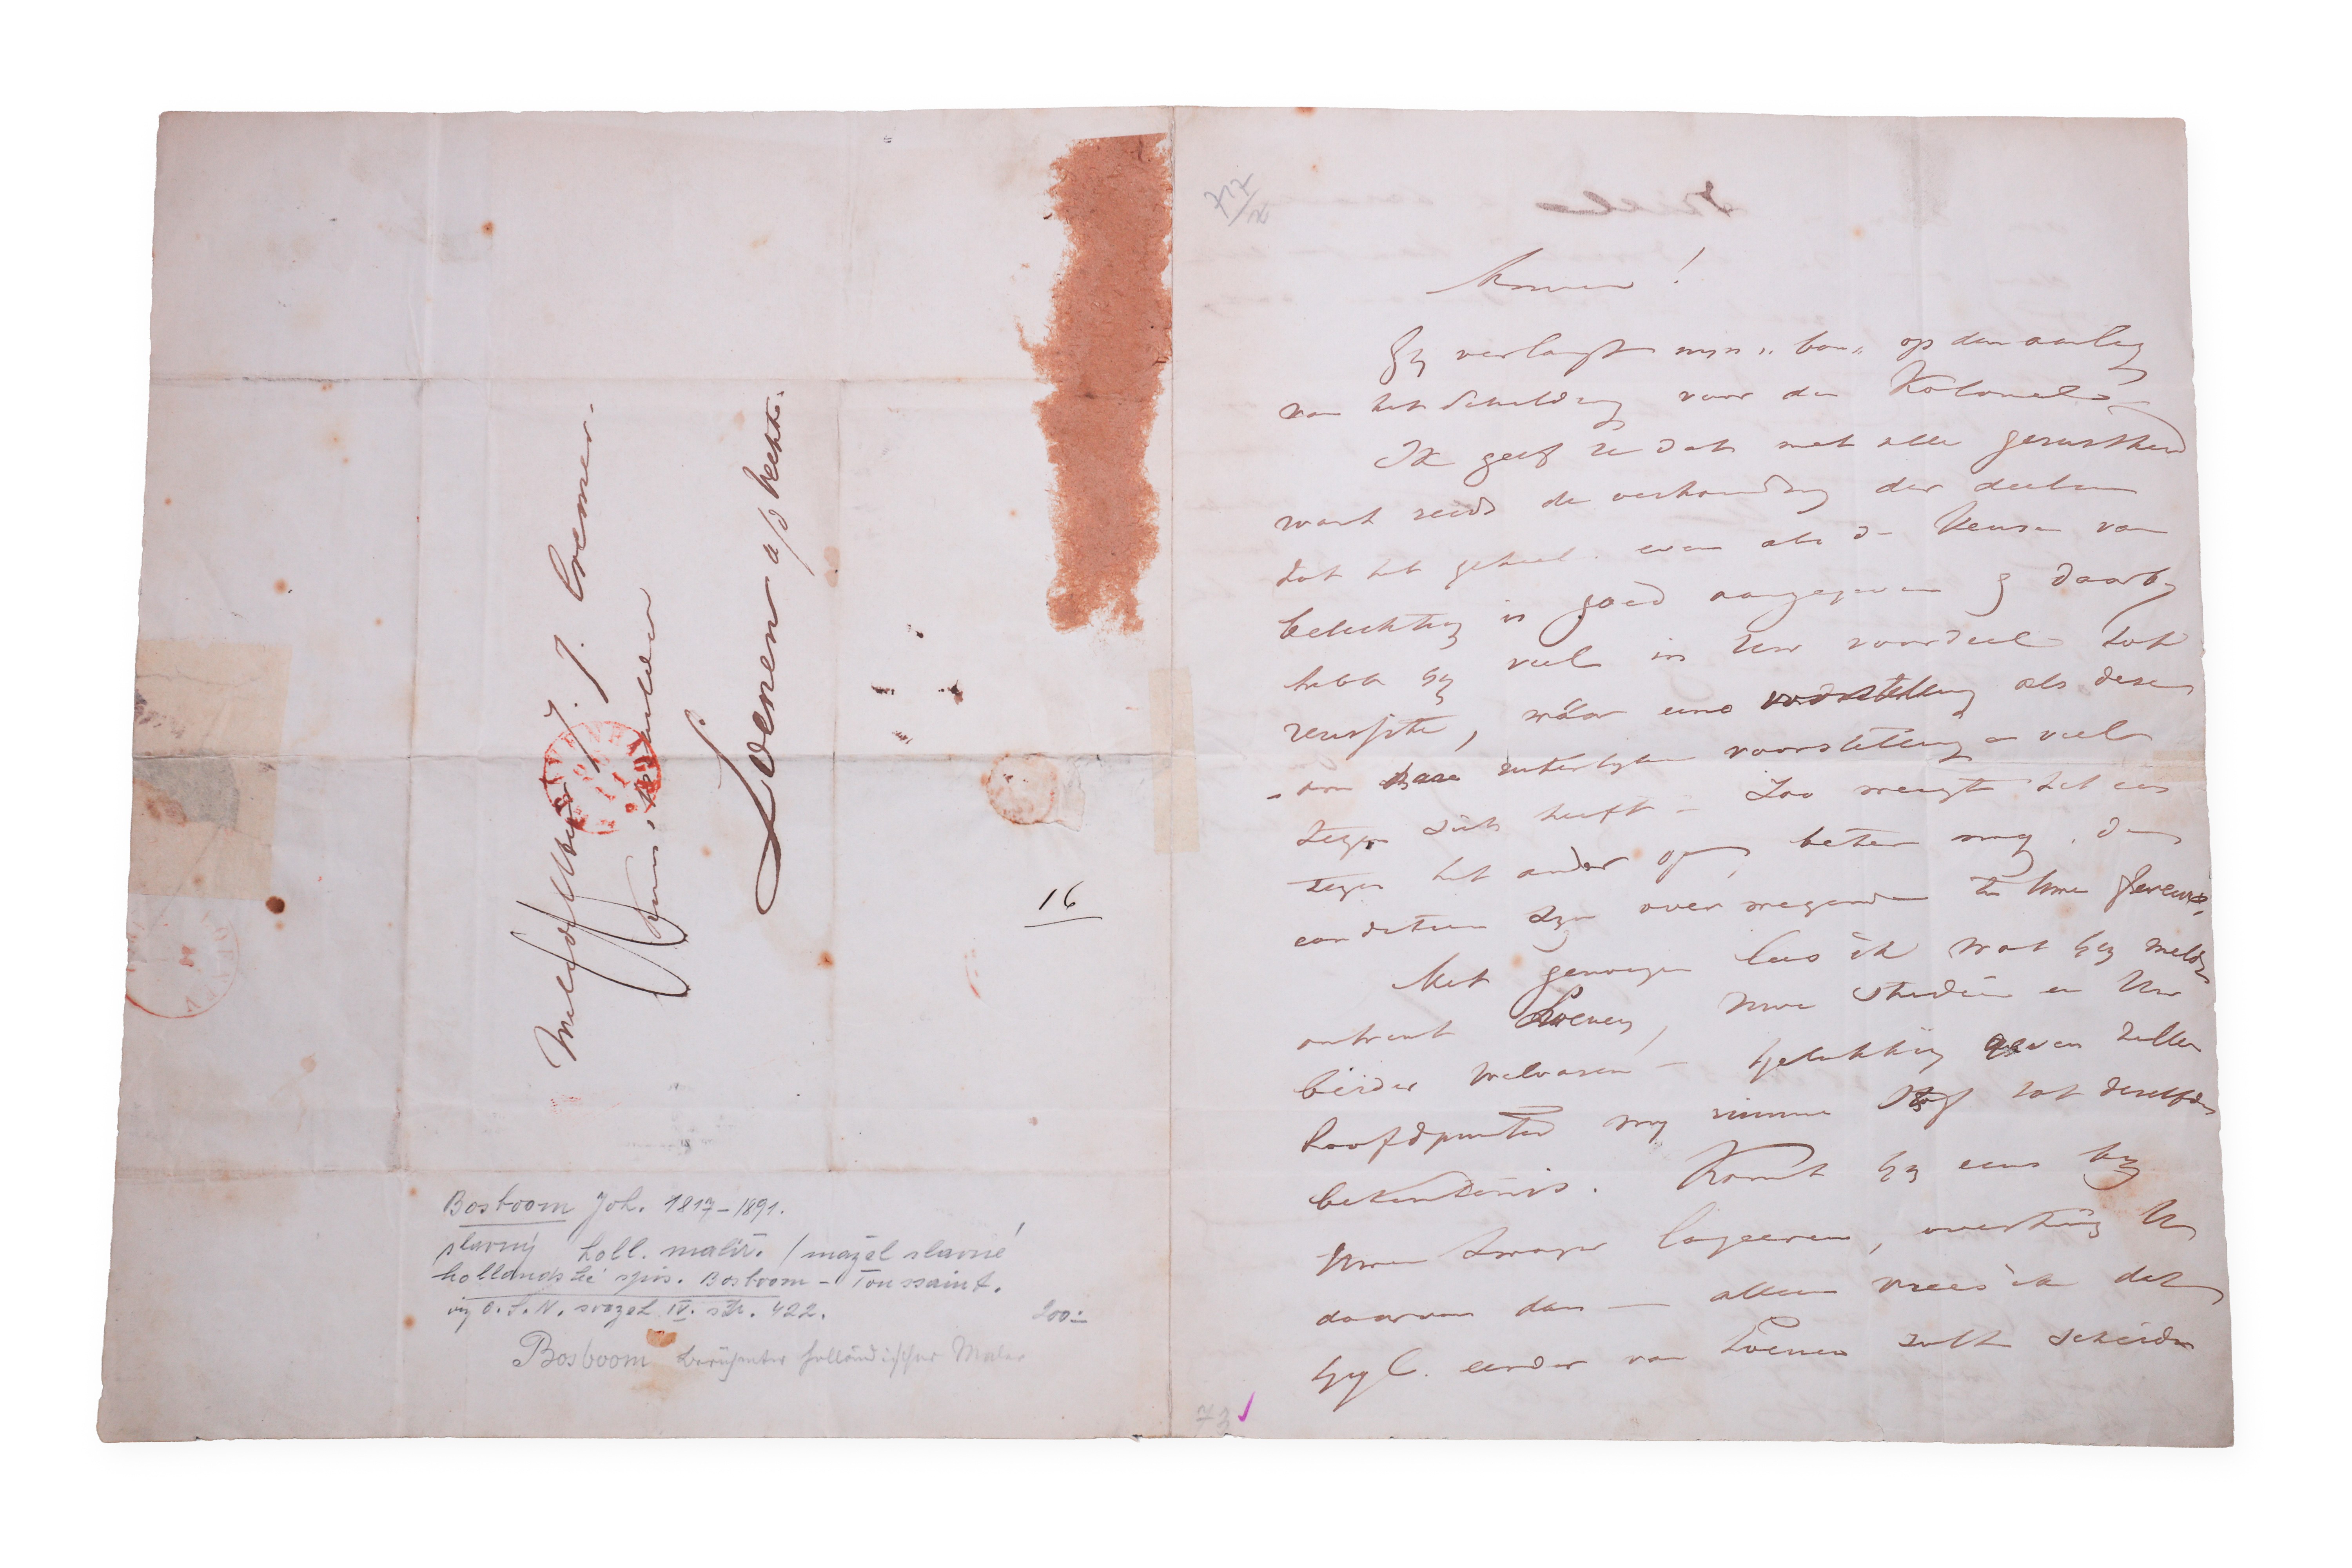 J. J. Cremer.
Loenen a/d Vecht.
16
Bosboom Joh. 1817–1891.
slavný holl. malíř. / mažel slavné
hollandské spis. Bosboom – Toussaint.
viz O. S. N. svazek IV. str. 422.
200.–
Bosboom berühmter holländischer Maler
717
Amice!
Gij verlangt mijn „bon„ op den aanleg
van het Schilderij voor den Kolonel
Ik geef U dat met alle gerustheid
want reeds de verhouding der deelen
tot het geheel even als de keuze van
belichting is goed aangegeven & daarbij
hebt gij veel in Uw voordeel tot
wáár eene voorstelling als deze
voorstelling veel
tegen zich heeft – Zoo weegt het een
tegen het ander op, beter nog, de
zijn overwegende in Uwe faveur,
Met genoegen las ik wat gij meldt
omtrent Loenen, Uwe studien en Uw
beider welvaren – Gelukkig geven zulke
hoofdpunten mij ruimme stof tot dezelfde
bekentenis. Komt gij eens bij
Uwen Zwager logeeren, overtuig U
daarvan dan – alleen vrees ik dat
gijl. eerder van Loenen zult scheiden
73